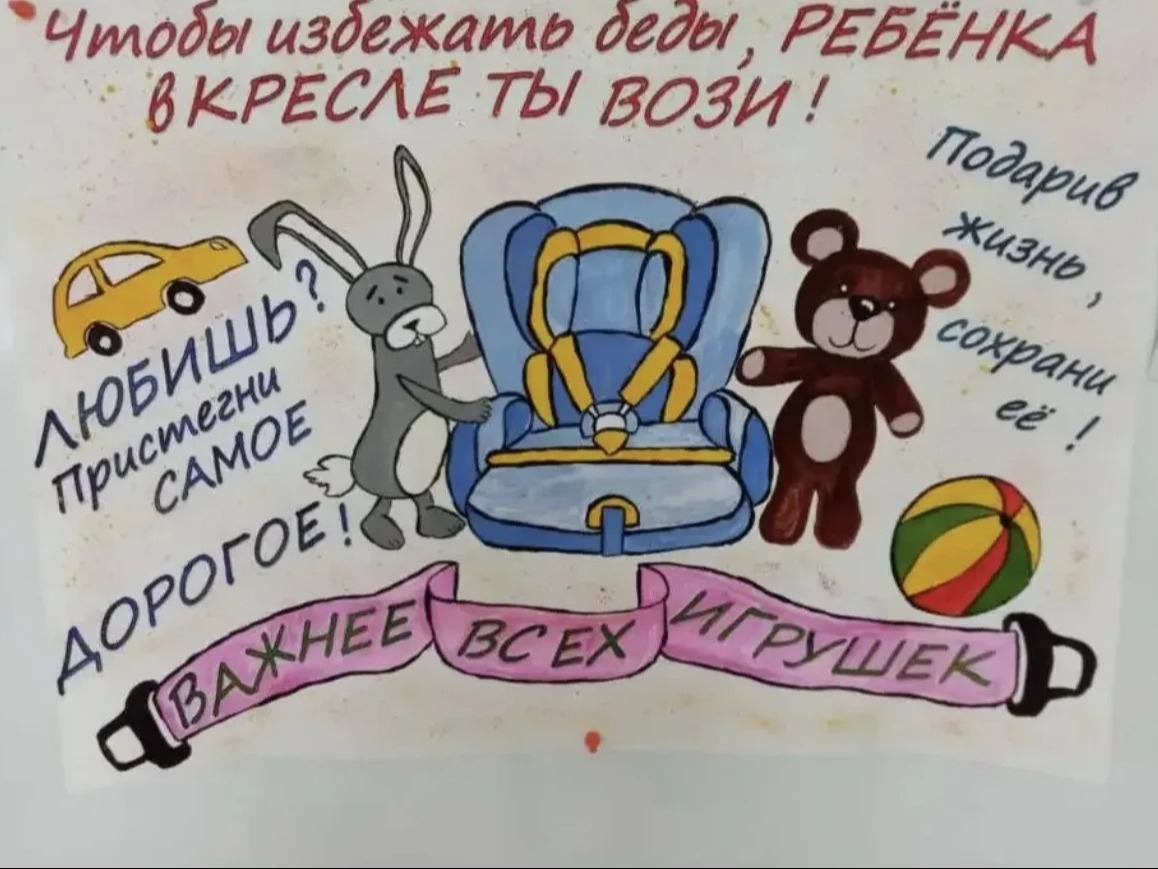 Чтобы избежать беды, РЕБЁНКА
в КРЕСЛЕ ТЫ ВОЗИ!
Подарив
жизнь,
сохрани
её!
ЛЮБИШЬ?
Пристегни
САМОЕ
ДОРОГОЕ!
ВАЖНЕЕ ВСЕХ ИГРУШЕК